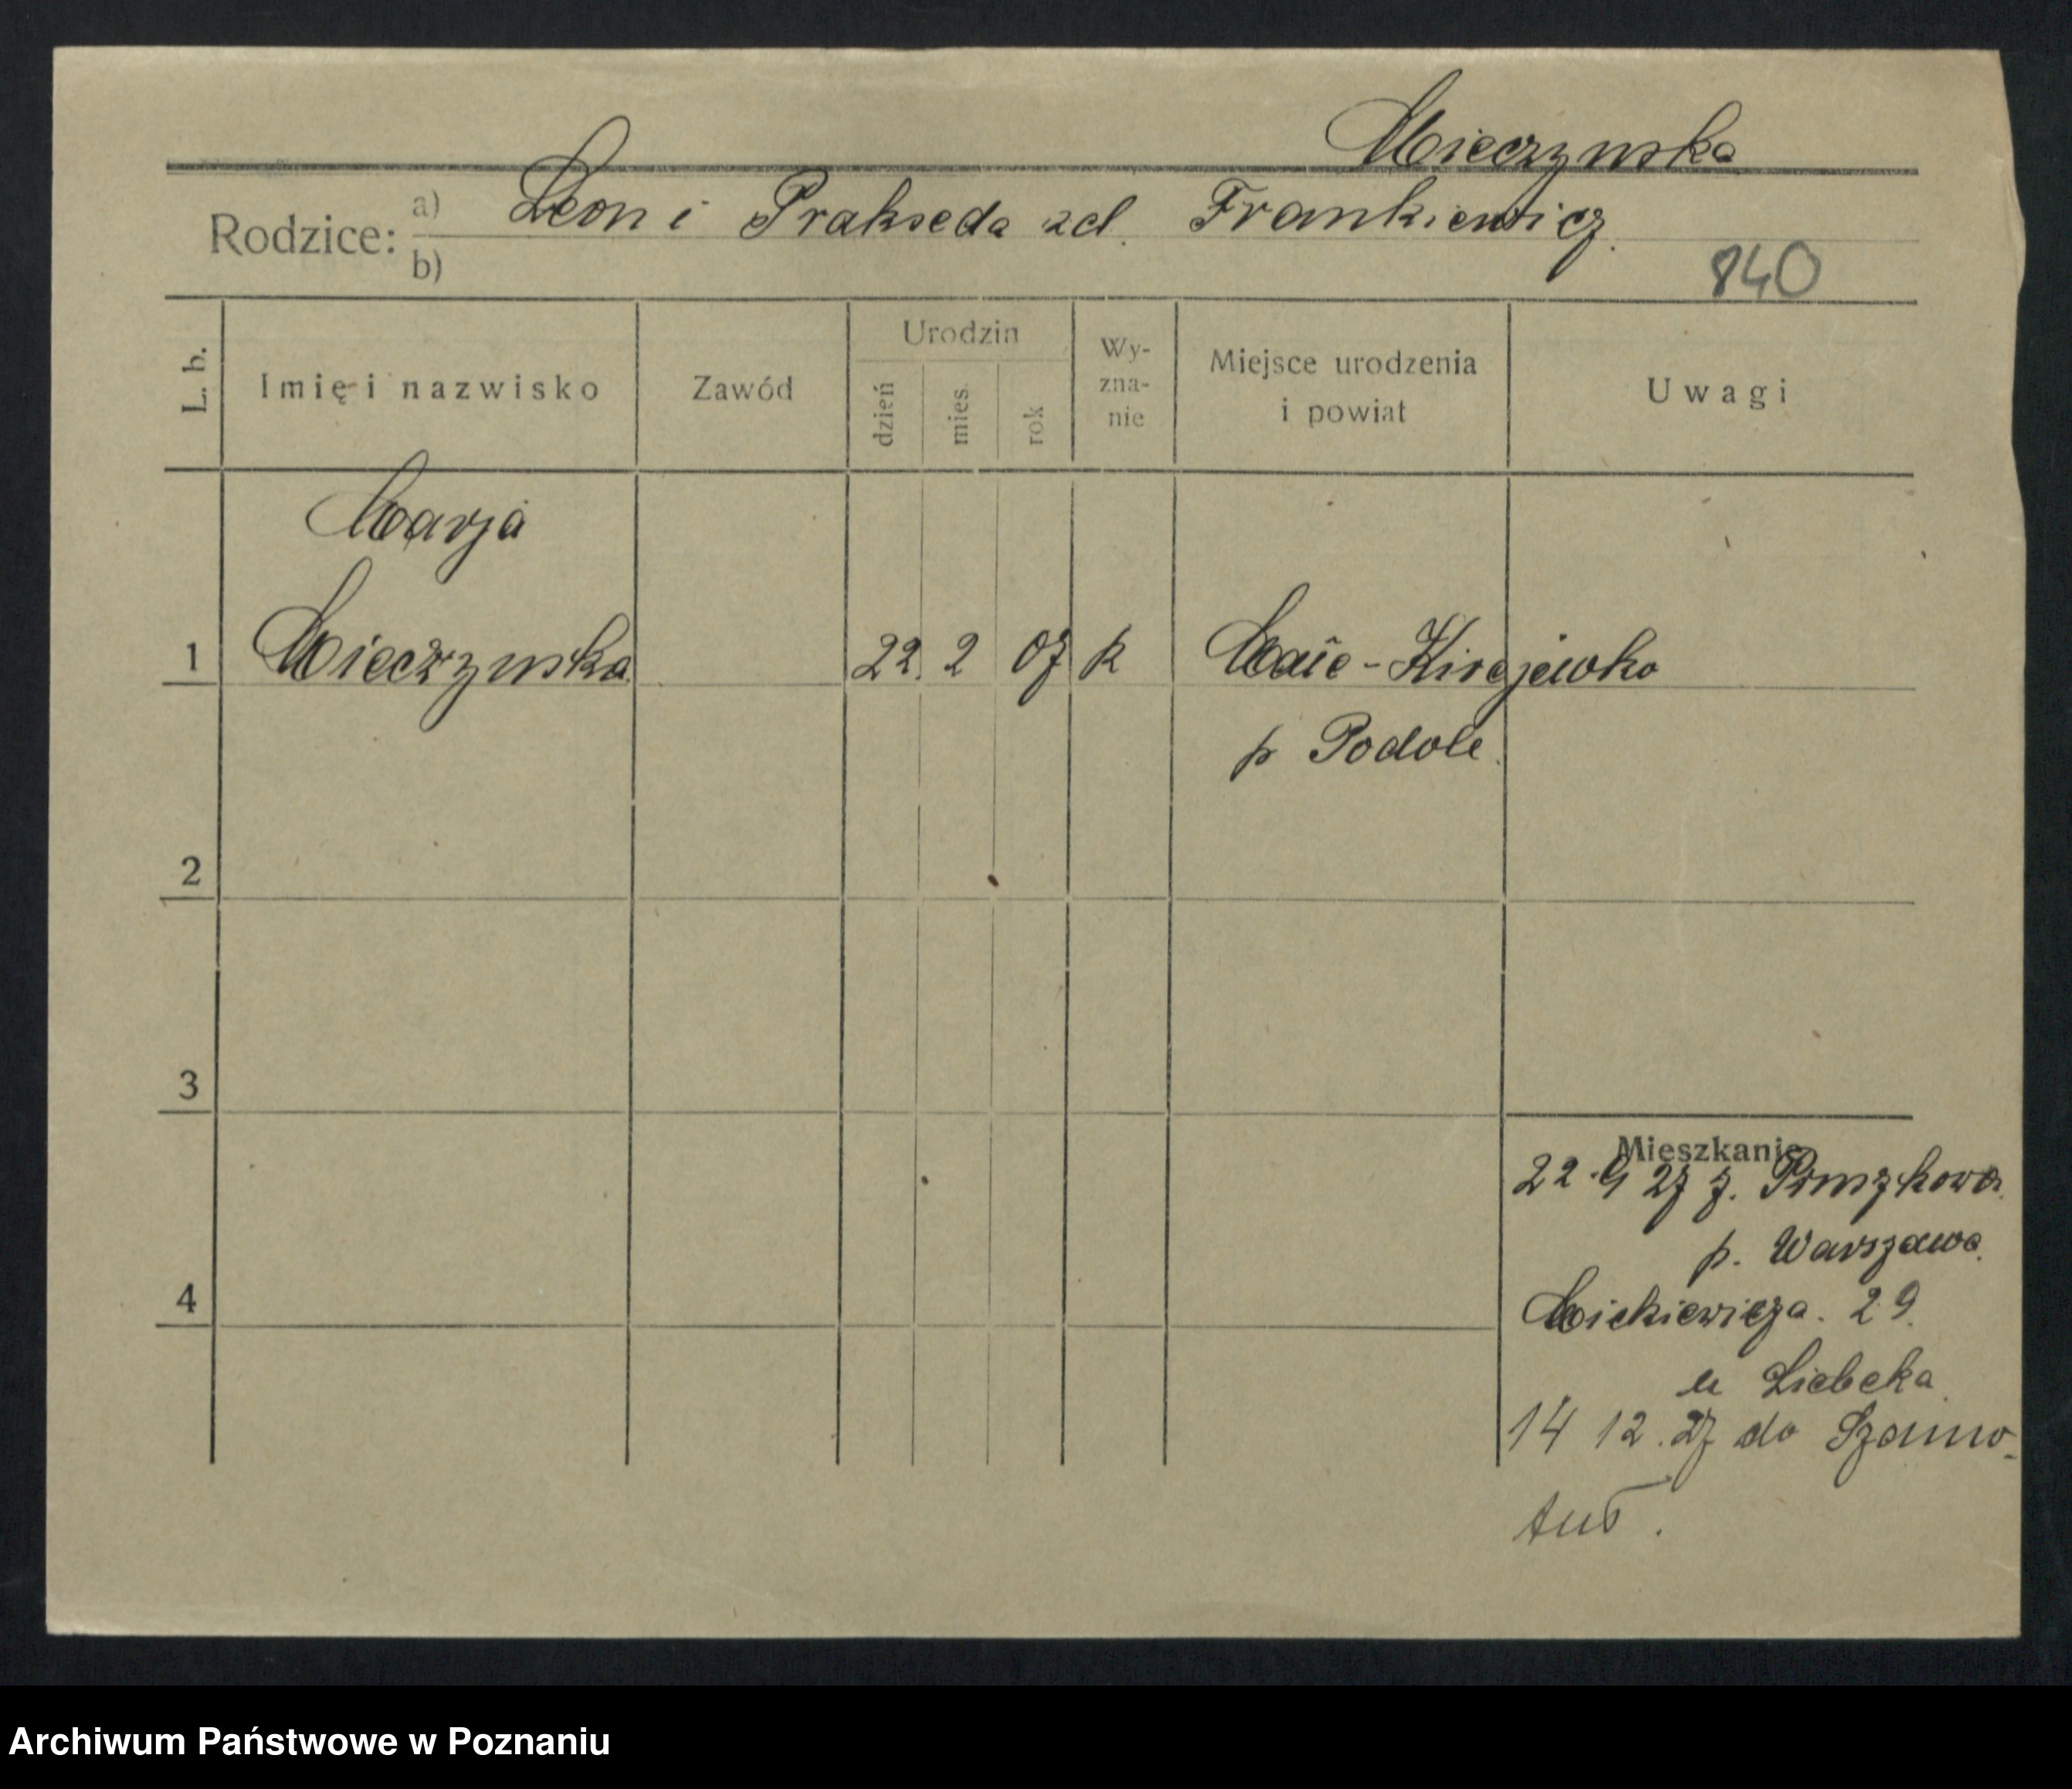 Mieczynska
Rodzice: a) Leon i Prakseda zd. Frankiewicz.
b)
840
L. b.
Imię i nazwisko
Zawód
Urodzin
dzień
mies.
rok
Wy-
zna-
nie
Miejsce urodzenia
i powiat
Uwagi
Marja
1 Mieczynska 22. 2 07 k
p Podole.
2
3
Mieszkanie
22.9 27 z.
p. Warszawa.
4
Mickiewicza. 29.
u Liebeka
14 12. 27 do Szamo-
tuł.
Archiwum Państwowe w Poznaniu